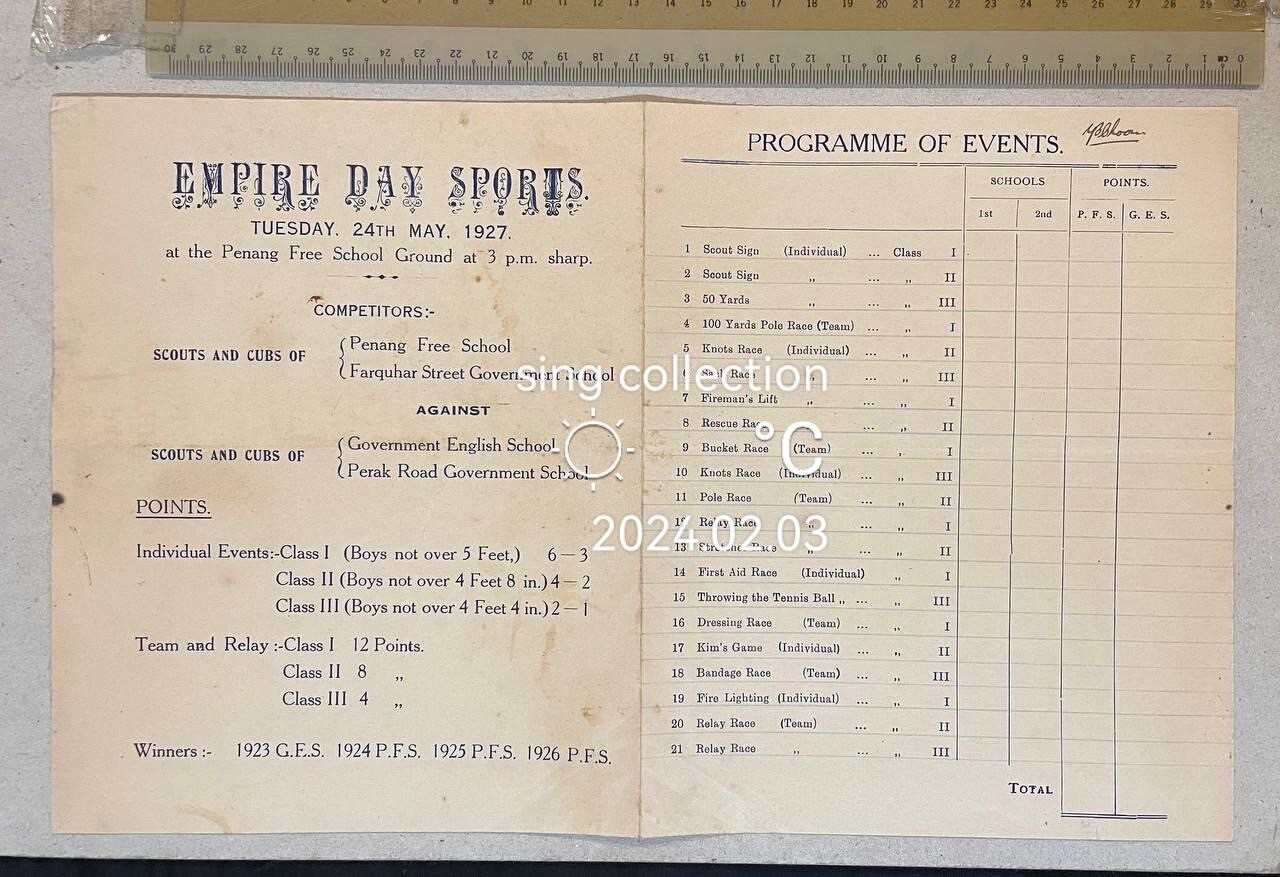 EMPIRE DAY SPORTS.
TUESDAY, 24TH MAY, 1927.
at the Penang Free School Ground at 3 p.m. sharp.
COMPETITORS:-
SCOUTS AND CUBS OF { Penang Free School
Farquhar Street Government School
AGAINST
SCOUTS AND CUBS OF { Government English School
Perak Road Government School
POINTS.
Individual Events:-Class I (Boys not over 5 Feet,) 6 — 3
Class II (Boys not over 4 Feet 8 in.) 4 — 2
Class III (Boys not over 4 Feet 4 in.) 2 — 1
Team and Relay :-Class I 12 Points.
Class II 8 „
Class III 4 „
Winners :- 1923 G.E.S. 1924 P.F.S. 1925 P.F.S. 1926 P.F.S.
PROGRAMME OF EVENTS.
SCHOOLS POINTS.
1st 2nd P. F. S. G. E. S.
1 Scout Sign (Individual) ... Class I
2 Scout Sign „ ... „ II
3 50 Yards „ ... „ III
4 100 Yards Pole Race (Team) ... „ I
5 Knots Race (Individual) ... „ II
6 Sack Race „ ... „ III
7 Fireman's Lift „ ... „ I
8 Rescue Race ... „ II
9 Bucket Race (Team) ... „ I
10 Knots Race (Individual) ... „ III
11 Pole Race (Team) ... „ II
12 Relay Race „ ... „ I
13 Stretcher Race „ ... „ II
14 First Aid Race (Individual) „ I
15 Throwing the Tennis Ball „ ... „ III
16 Dressing Race (Team) ... „ I
17 Kim's Game (Individual) ... „ II
18 Bandage Race (Team) ... „ III
19 Fire Lighting (Individual) ... „ I
20 Relay Race (Team) ... „ II
21 Relay Race „ ... „ III
TOTAL
sing collection
°C
2024 02 03